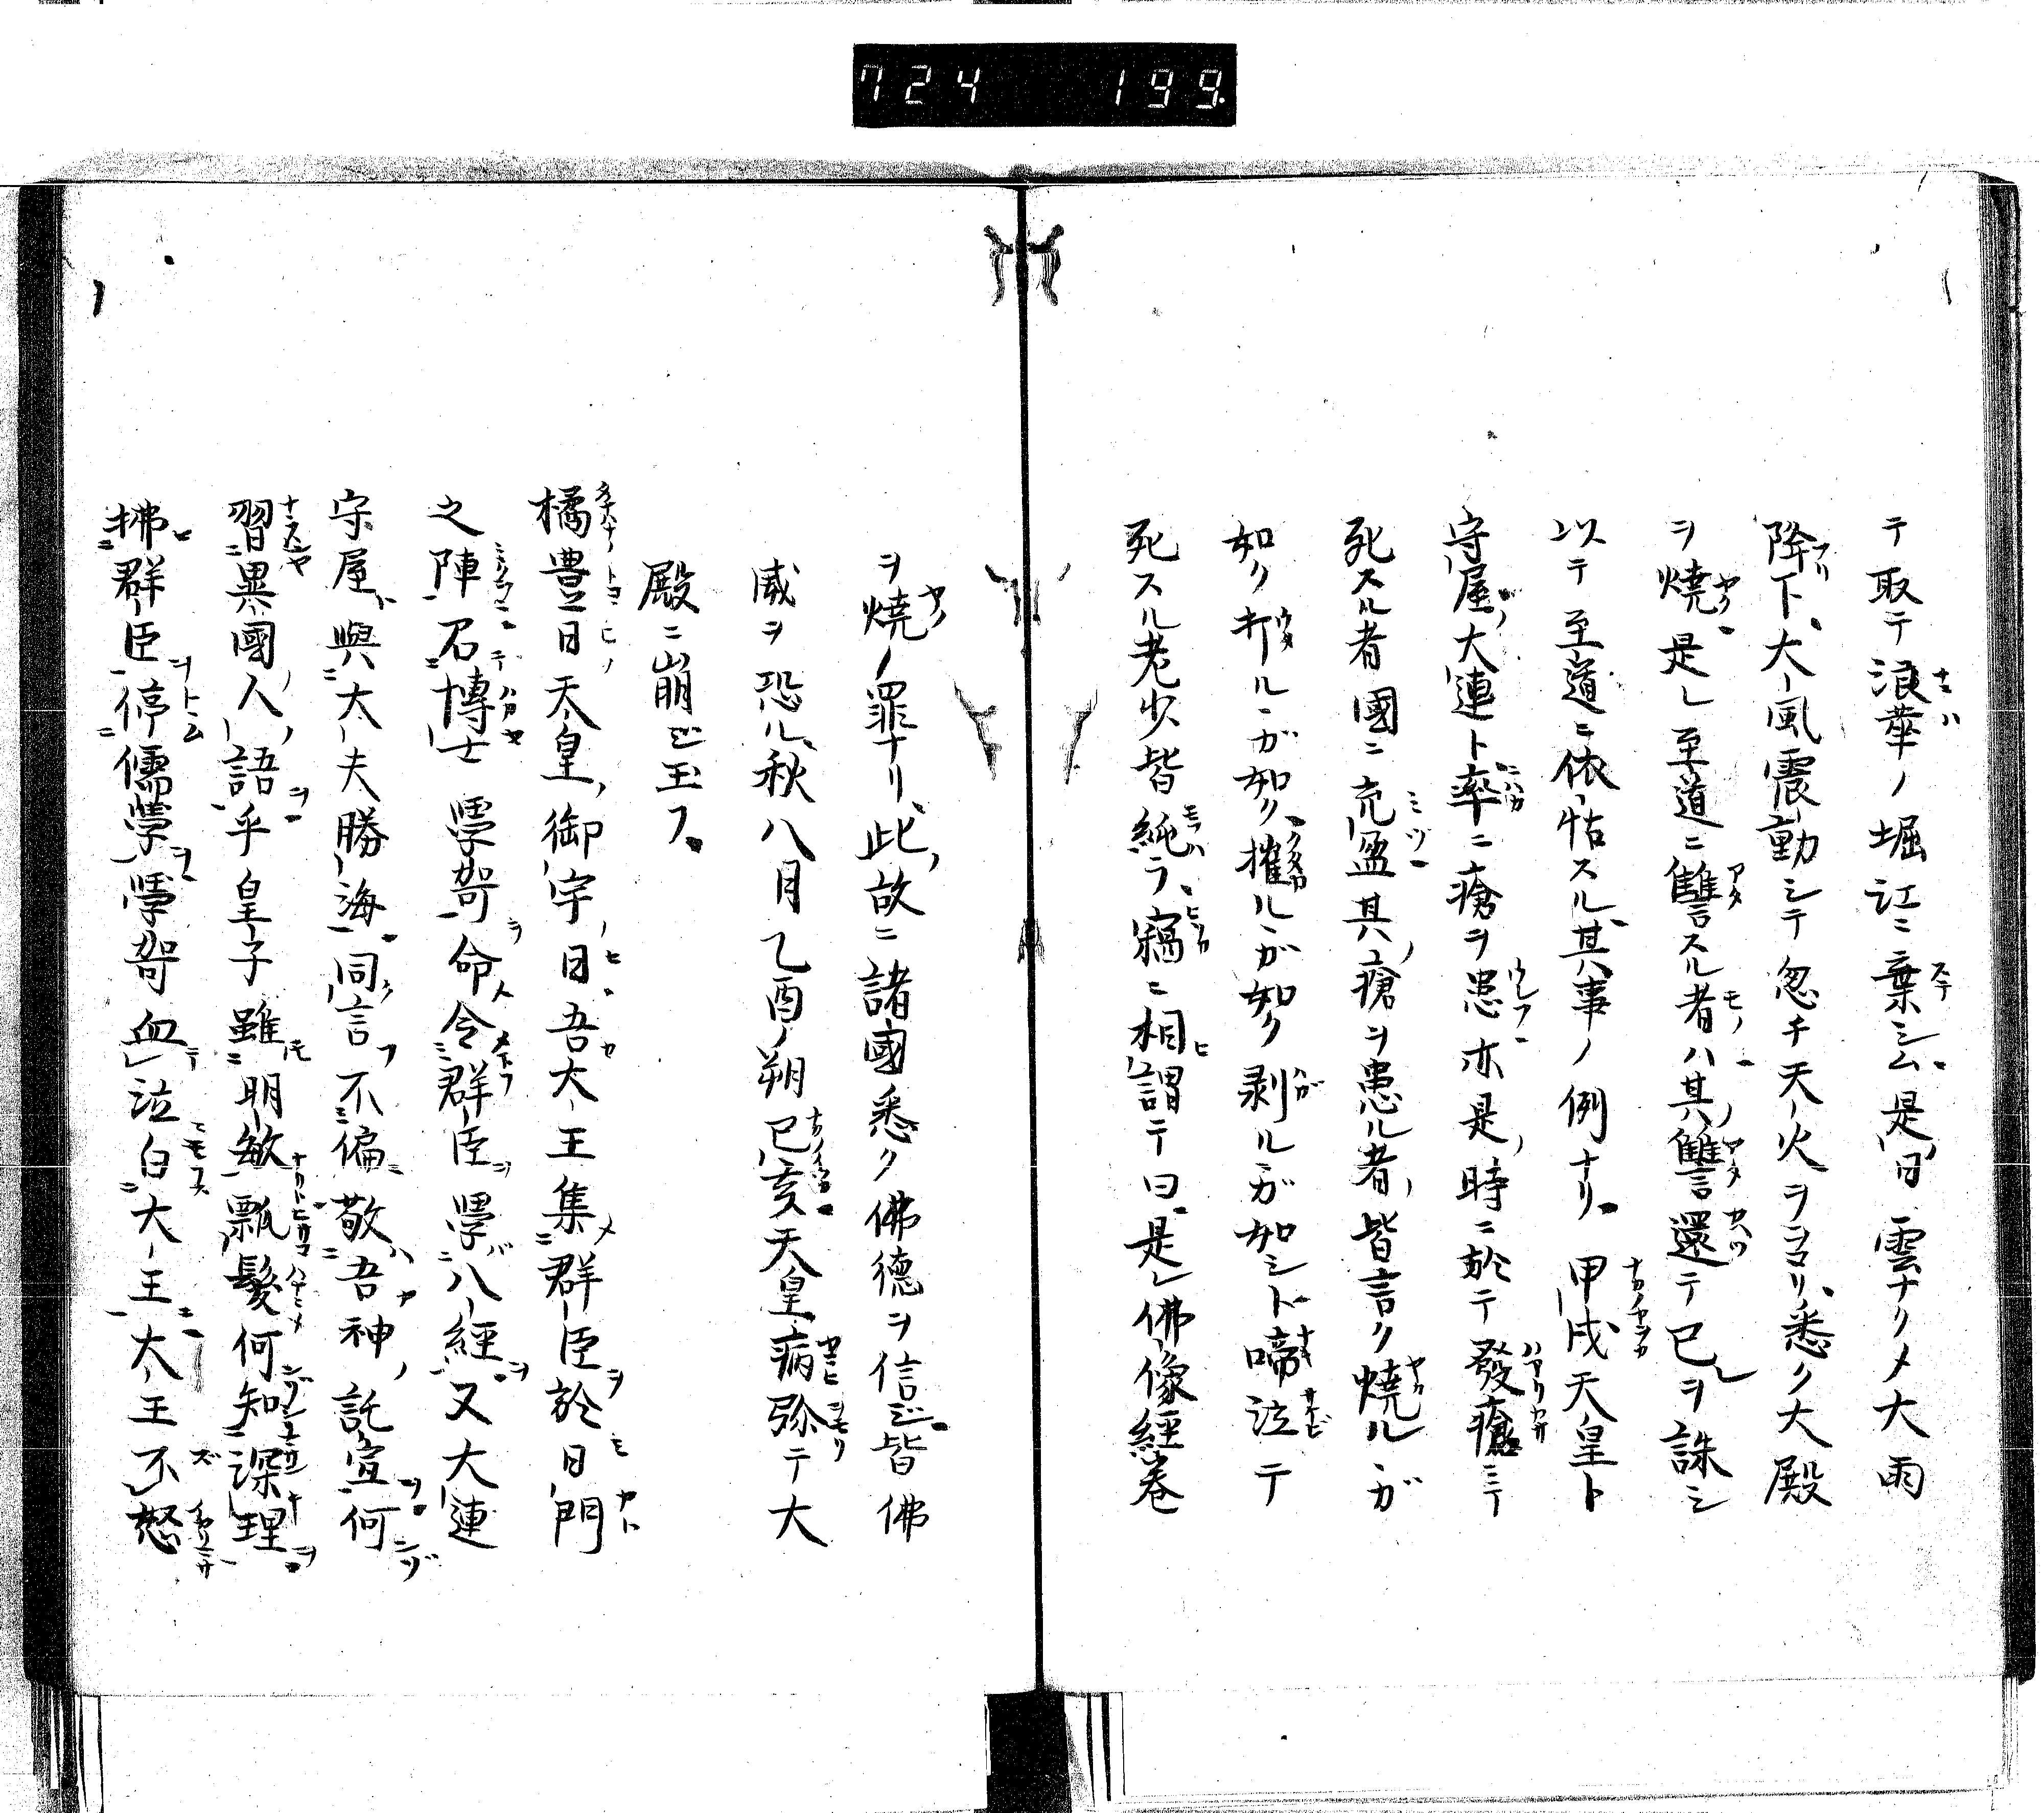 724 199.
テ取テ浪華ノ堀江ニ棄シム是日雲ナクメ大雨
降下大風震動シテ忽チ天火ヲヨリ悉ク大殿
ヲ燒是レ至道ニ讐スル者ハ其讐還テ已ヲ誅シ
以テ至道ニ依怙スル其事ノ例ナリ甲戌天皇ト
守屋大連ト率ニ瘡ヲ患亦是時ニ於テ發瘡ミテ
死スル者國ニ充盈其瘡ヲ患ル者皆言ク燒ルガ
如ク斫ルガ如ク摧ルガ如ク剥ルガ如シト啼泣テ
死スル老少皆純ラ竊ニ相謂テ曰是レ佛像經卷
ヲ燒ノ罪ナリ此故ニ諸國悉ク佛德ヲ信ジ皆佛
威ヲ恐ル秋八月乙酉ノ朔己亥天皇病弥テ大
殿ニ崩ジ玉フ
橘豊日天皇御宇日吾大王集群臣於日門
之陣召博士學哿命令群臣學八經又大連
守屋與大夫勝海同言不偏敬吾神託宣何
習異國人語乎皇子雖明敏瓢髮何知深理
拂群臣停儒學學哿血泣白大王大王不怒